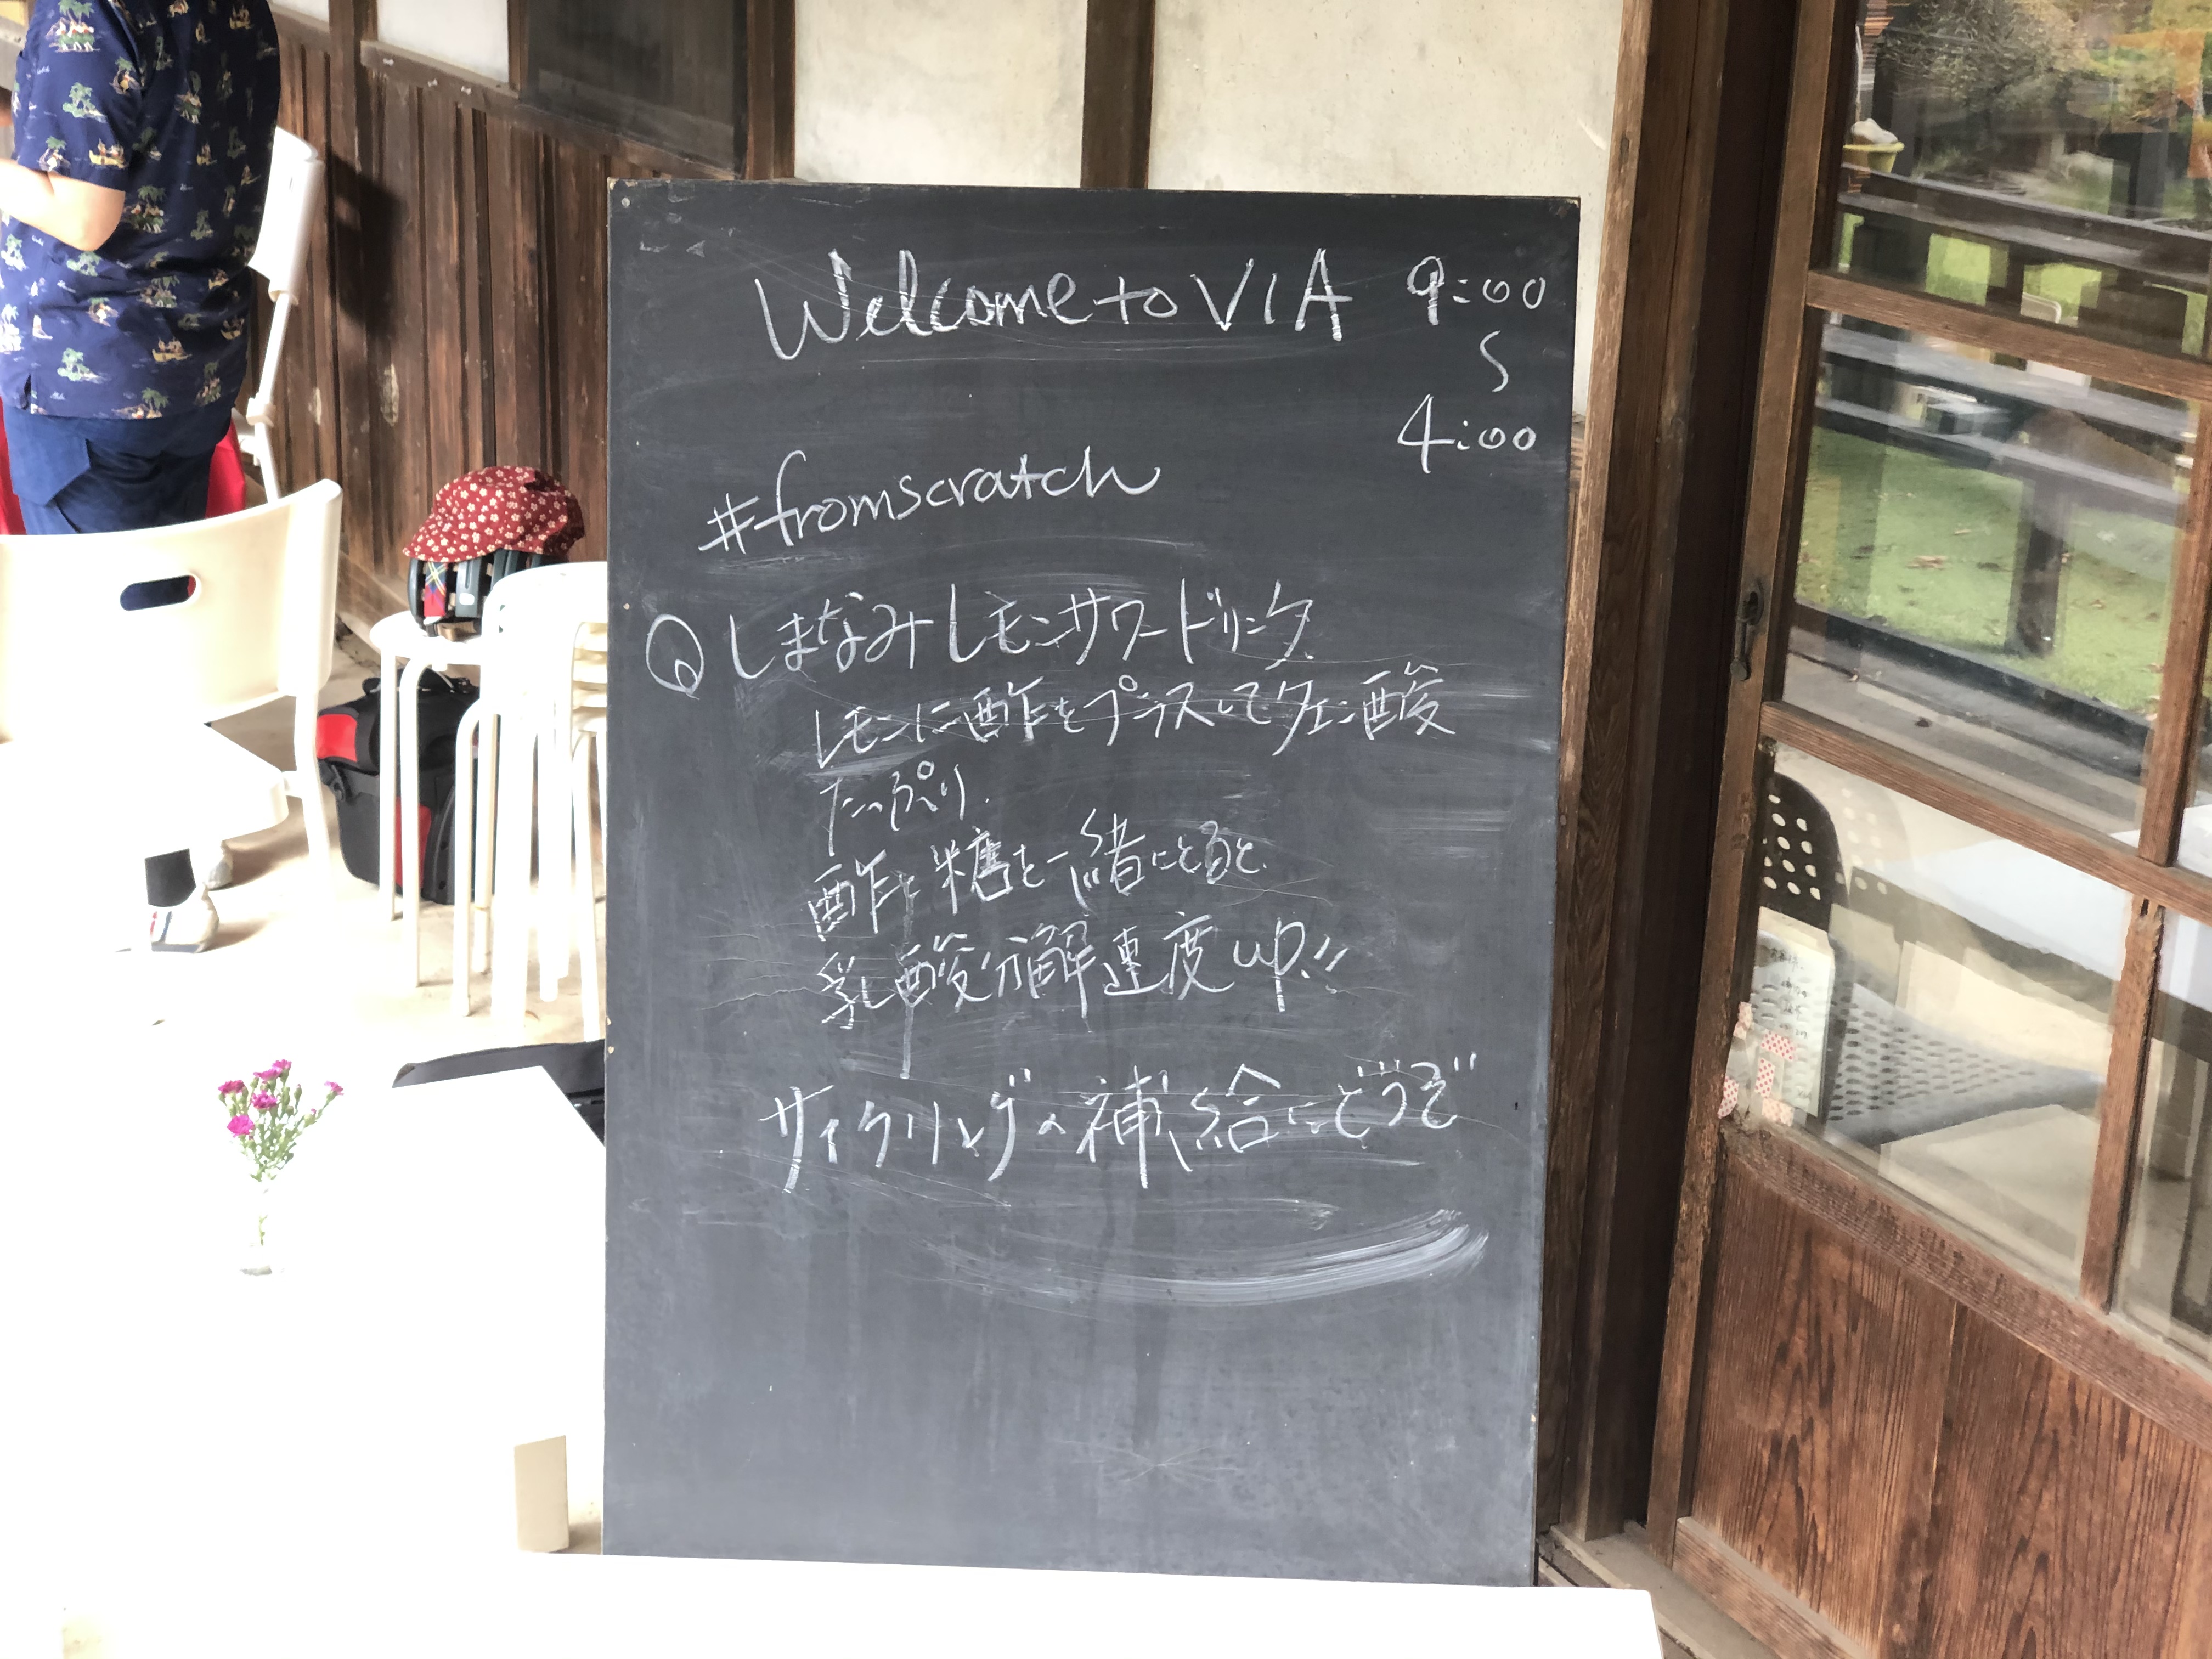 Welcome to VIA
9:00
〜
4:00
#fromscratch
しまなみレモンサワードリンク
レモンに酢をプラスしてクエン酸
たっぷり.
酢と糖を一緒にとると
乳酸分解速度up!!
サイクリングの補給にどうぞ